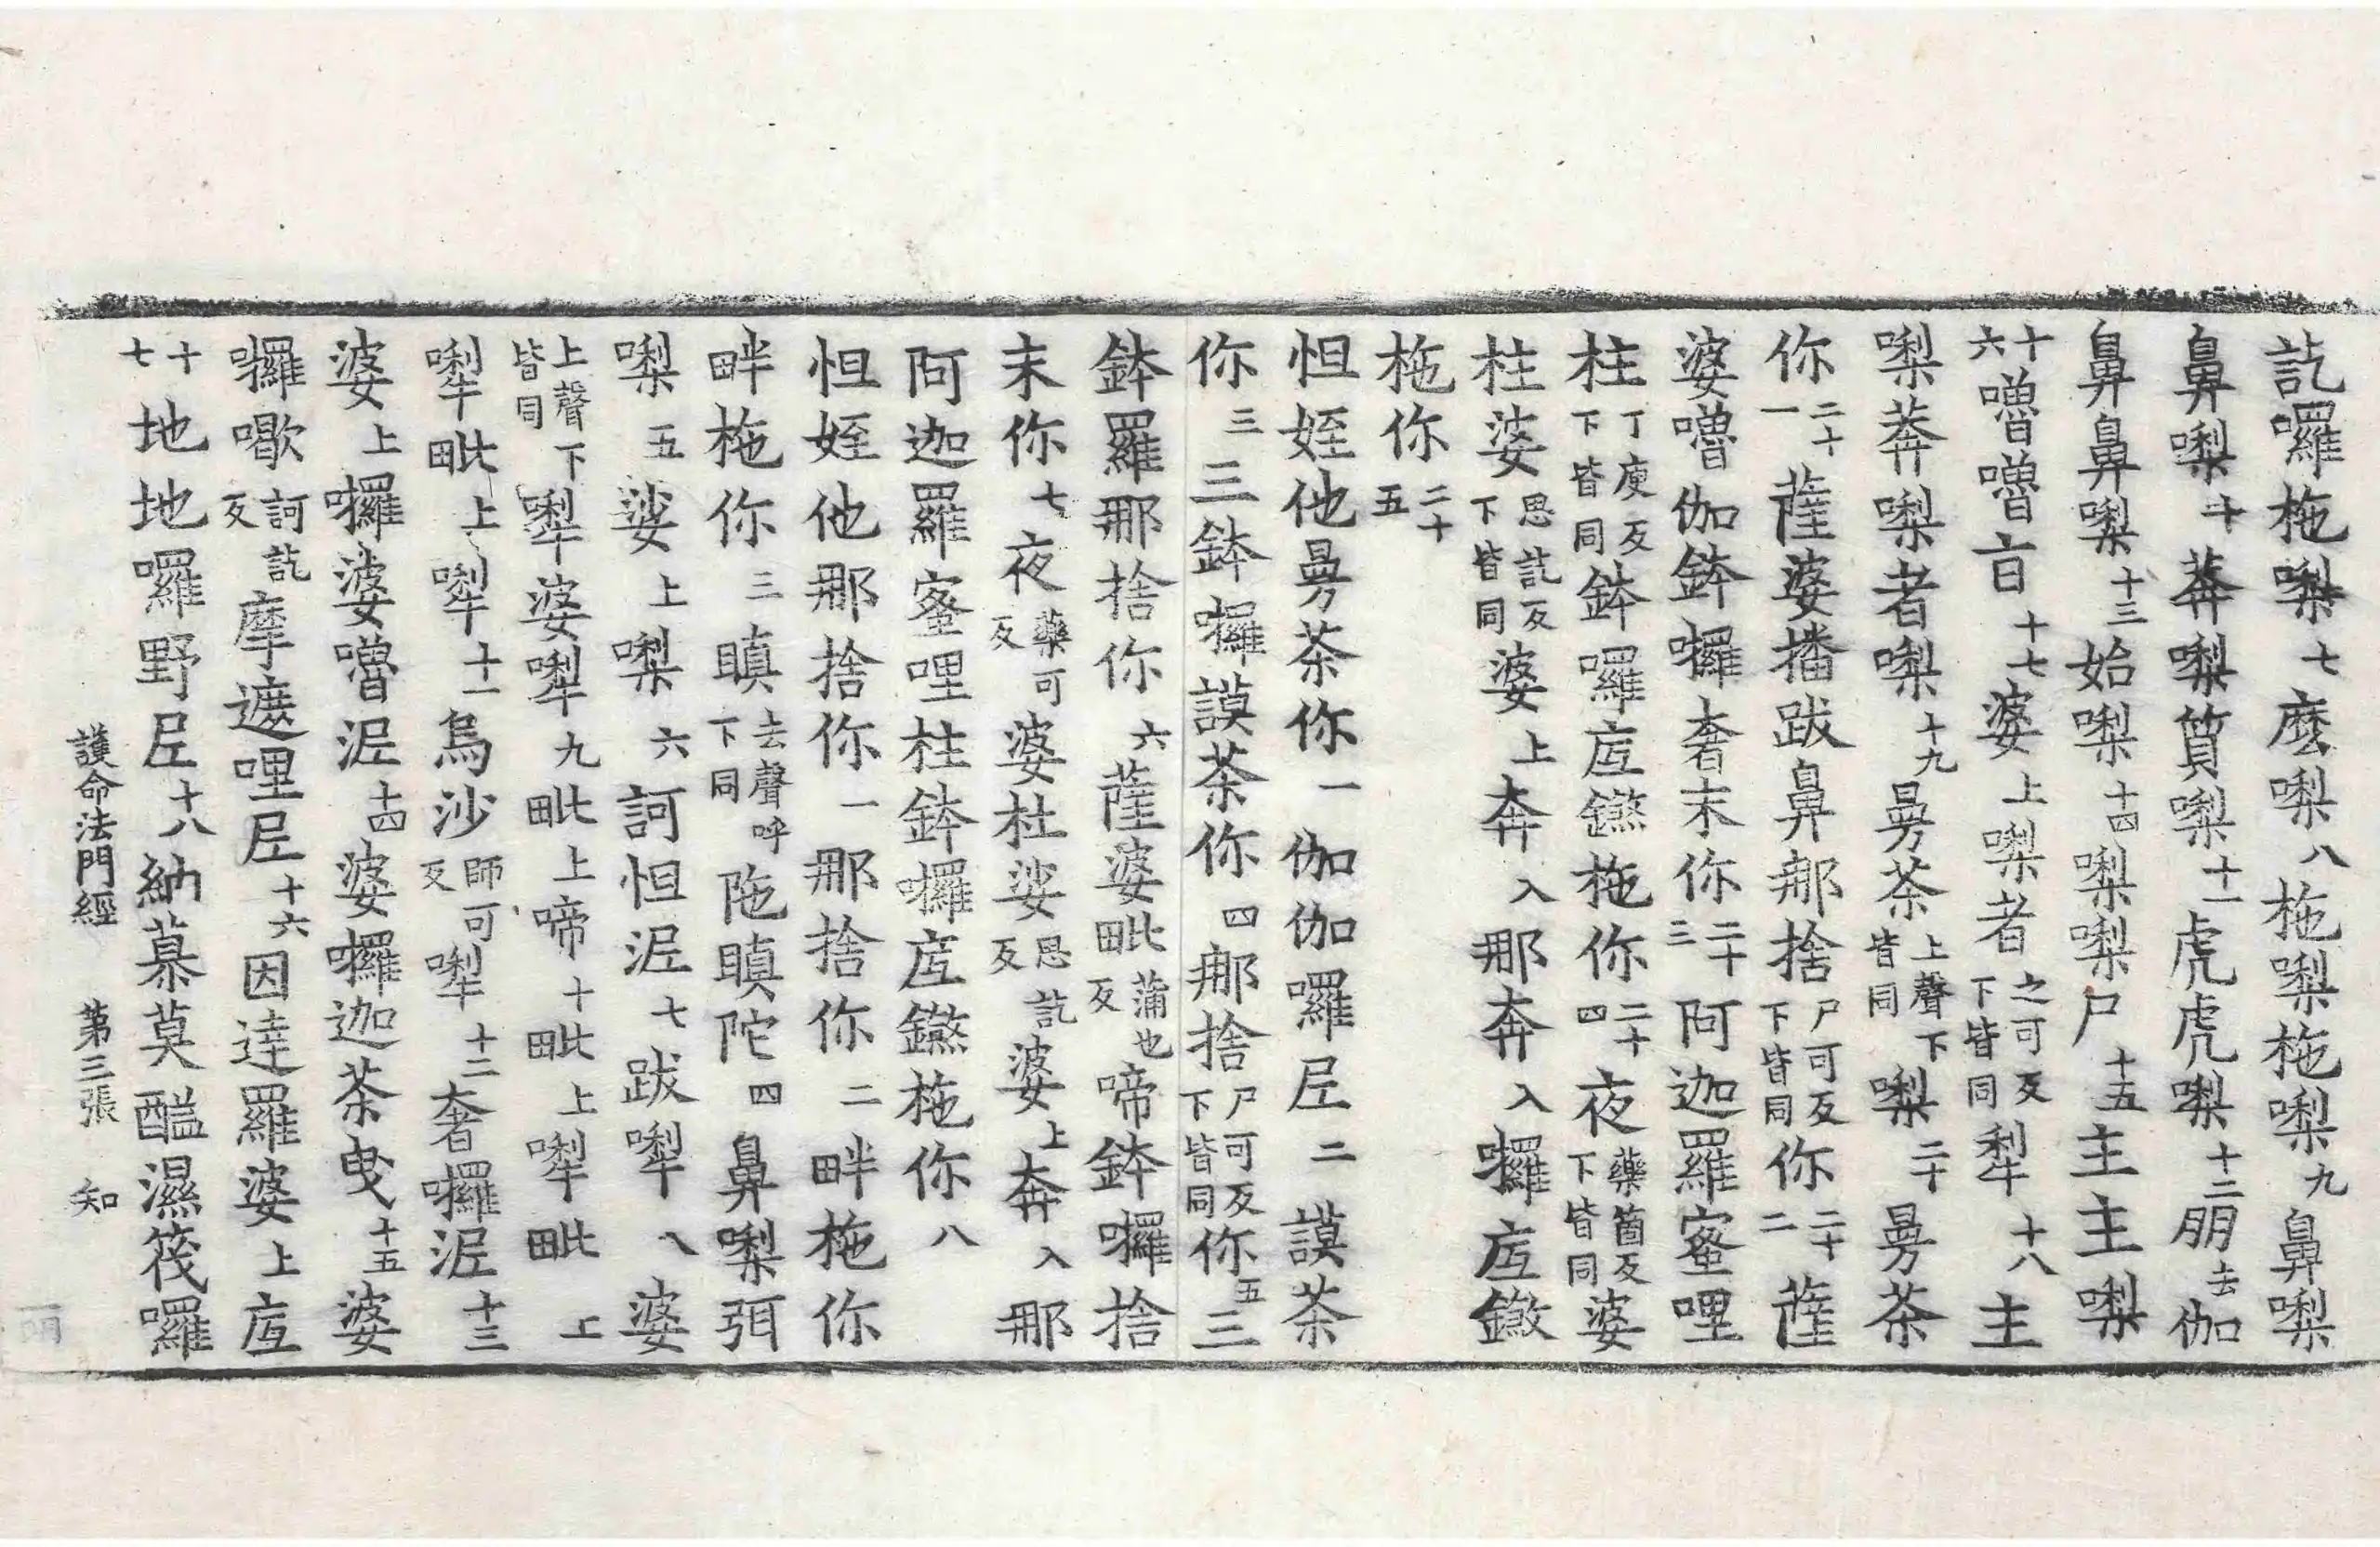 訖囉柂㘑七麽㘑八柂㘑柂㘑九鼻㘑
鼻㘑十莾㘑質㘑十一虎虎㘑十二朋去伽
鼻鼻㘑十三始㘑十四㘑㘑尸十五主主㘑
十六嚕嚕𠱾十七婆上㘑者之可反下皆同犁十八主
㘑莾㘑者㘑十九曼茶上聲下皆同㘑二十曼茶
你二十一薩婆播跋鼻那捨尸可反下皆同你二十二薩
婆嚕伽鉢囉奢末你二十三阿迦羅蜜哩
柱丁庾反下皆同鉢囉底鑑柂你二十四夜藥箇反下皆同婆
柱娑恩訖反下皆同婆上奔入那奔入囉底鑑
柂你二十五
怛姪他曼茶你一伽伽囉𡰱二謨茶
你三三鉢囉謨茶你四那捨尸可反下皆同你五三
鉢羅那捨你六薩婆毗蒲也反啼鉢囉捨
末你七夜藥可反婆杜娑恩訖反婆上奔入那
阿迦羅蜜哩柱鉢囉底鑑柂你八
怛姪他那捨你一那捨你二畔柂你
畔柂你三瞋去聲呼下同陁瞋陀四鼻㘑弭
㘑五娑上㘑六訶怛泥七跋㘑八婆
上聲下皆同㘑婆㘑九毗上啼十毗上㘑毗上
㘑毗上㘑十一烏沙師可反㘑十二奢囉泥十三
婆上囉婆嚕泥十四婆囉迦茶曳十五婆
囉歇訶訖反摩遮哩𡰱十六因達羅婆上底
十七地地囉野𡰱十八納慕莫醯濕筏囉
護命法門經 第三張 知